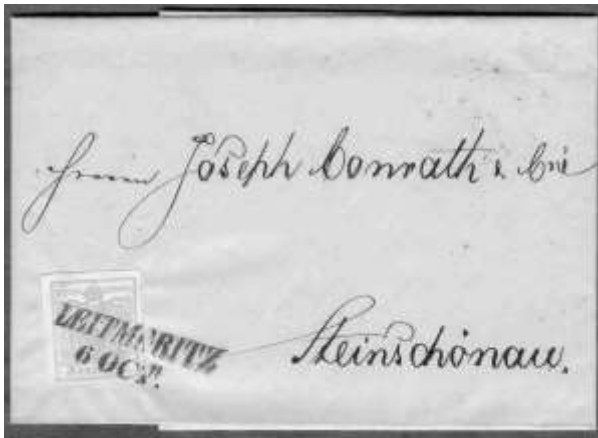 Herrn Joseph Conrath & Cie
LEITMERITZ
6 OCT.
Steinschönau.